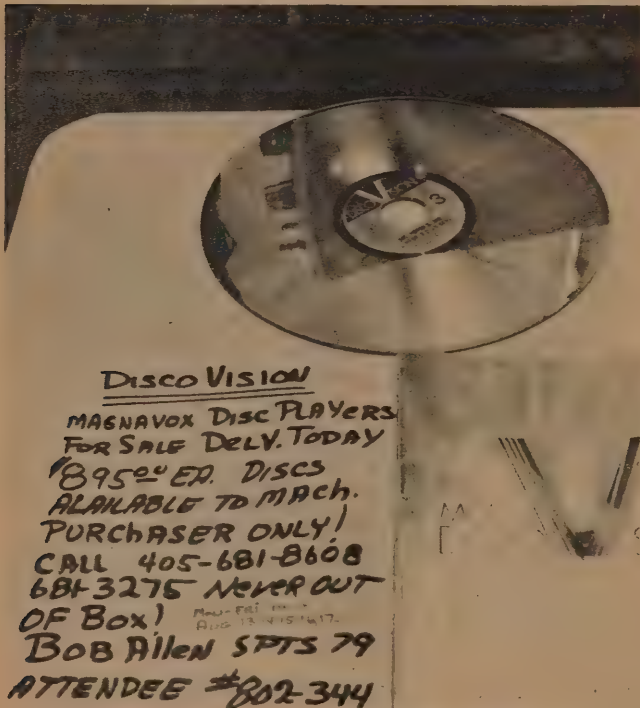 DISCO VISION
MAGNAVOX DISC PLAYERS
FOR SALE DELV. TODAY
$895.00 EA. DISCS
ALAILABLE TO MACH.
PURCHASER ONLY!
CALL 405-681-8608
681-3275 NEVER OUT
OF BOX!
MON-FRI
AUG 13
BOB AllEN SPTS 79
ATTENDEE #802-344
3